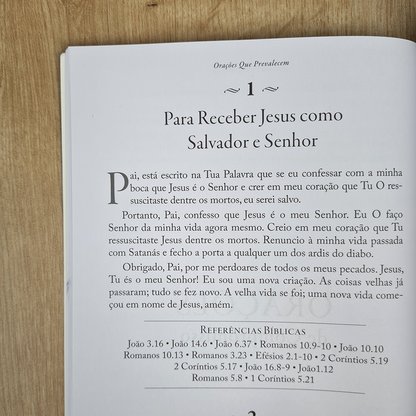 Orações Que Prevalecem
~ 1 ~
Para Receber Jesus como
Salvador e Senhor
Pai, está escrito na Tua Palavra que se eu confessar com a minha
boca que Jesus é o Senhor e crer em meu coração que Tu O res-
suscitaste dentre os mortos, eu serei salvo.
Portanto, Pai, confesso que Jesus é o meu Senhor. Eu O faço
Senhor da minha vida agora mesmo. Creio em meu coração que Tu
ressuscitaste Jesus dentre os mortos. Renuncio à minha vida passada
com Satanás e fecho a porta a qualquer um dos ardis do diabo.
Obrigado, Pai, por me perdoares de todos os meus pecados. Jesus,
Tu és o meu Senhor! Eu sou uma nova criação. As coisas velhas já
passaram; tudo se fez novo. A velha vida se foi; uma nova vida come-
çou em nome de Jesus, amém.
Referências Bíblicas
João 3.16 • João 14.6 • João 6.37 • Romanos 10.9-10 • João 10.10
Romanos 10.13 • Romanos 3.23 • Efésios 2.1-10 • 2 Coríntios 5.19
2 Coríntios 5.17 • João 16.8-9 • João1.12
Romanos 5.8 • 1 Coríntios 5.21